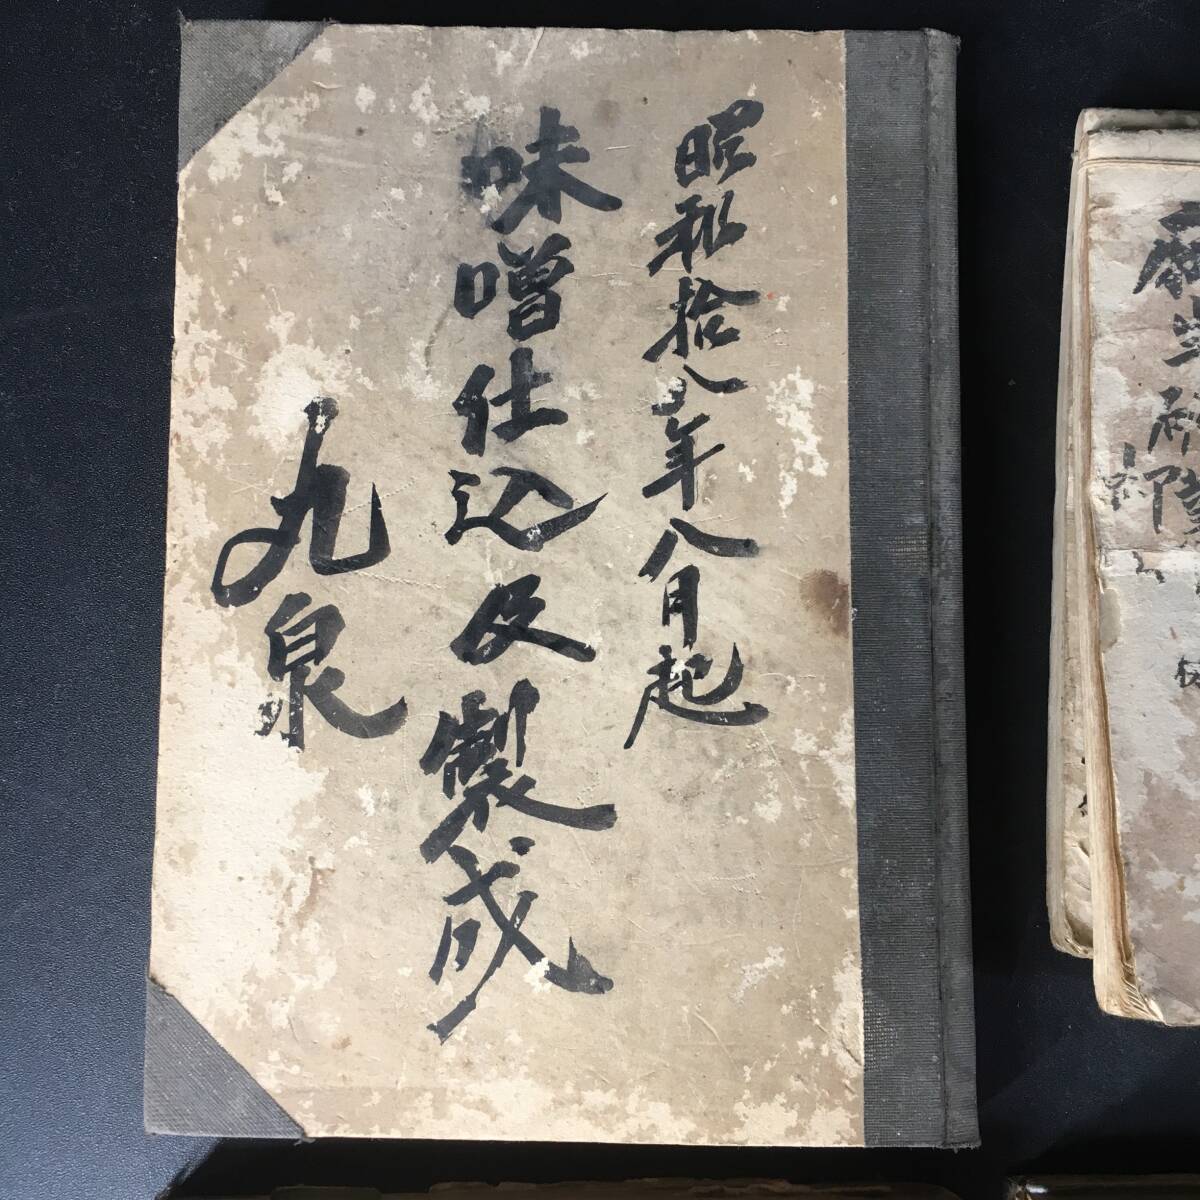 昭和拾八年八月起
味噌仕込及製成
丸泉